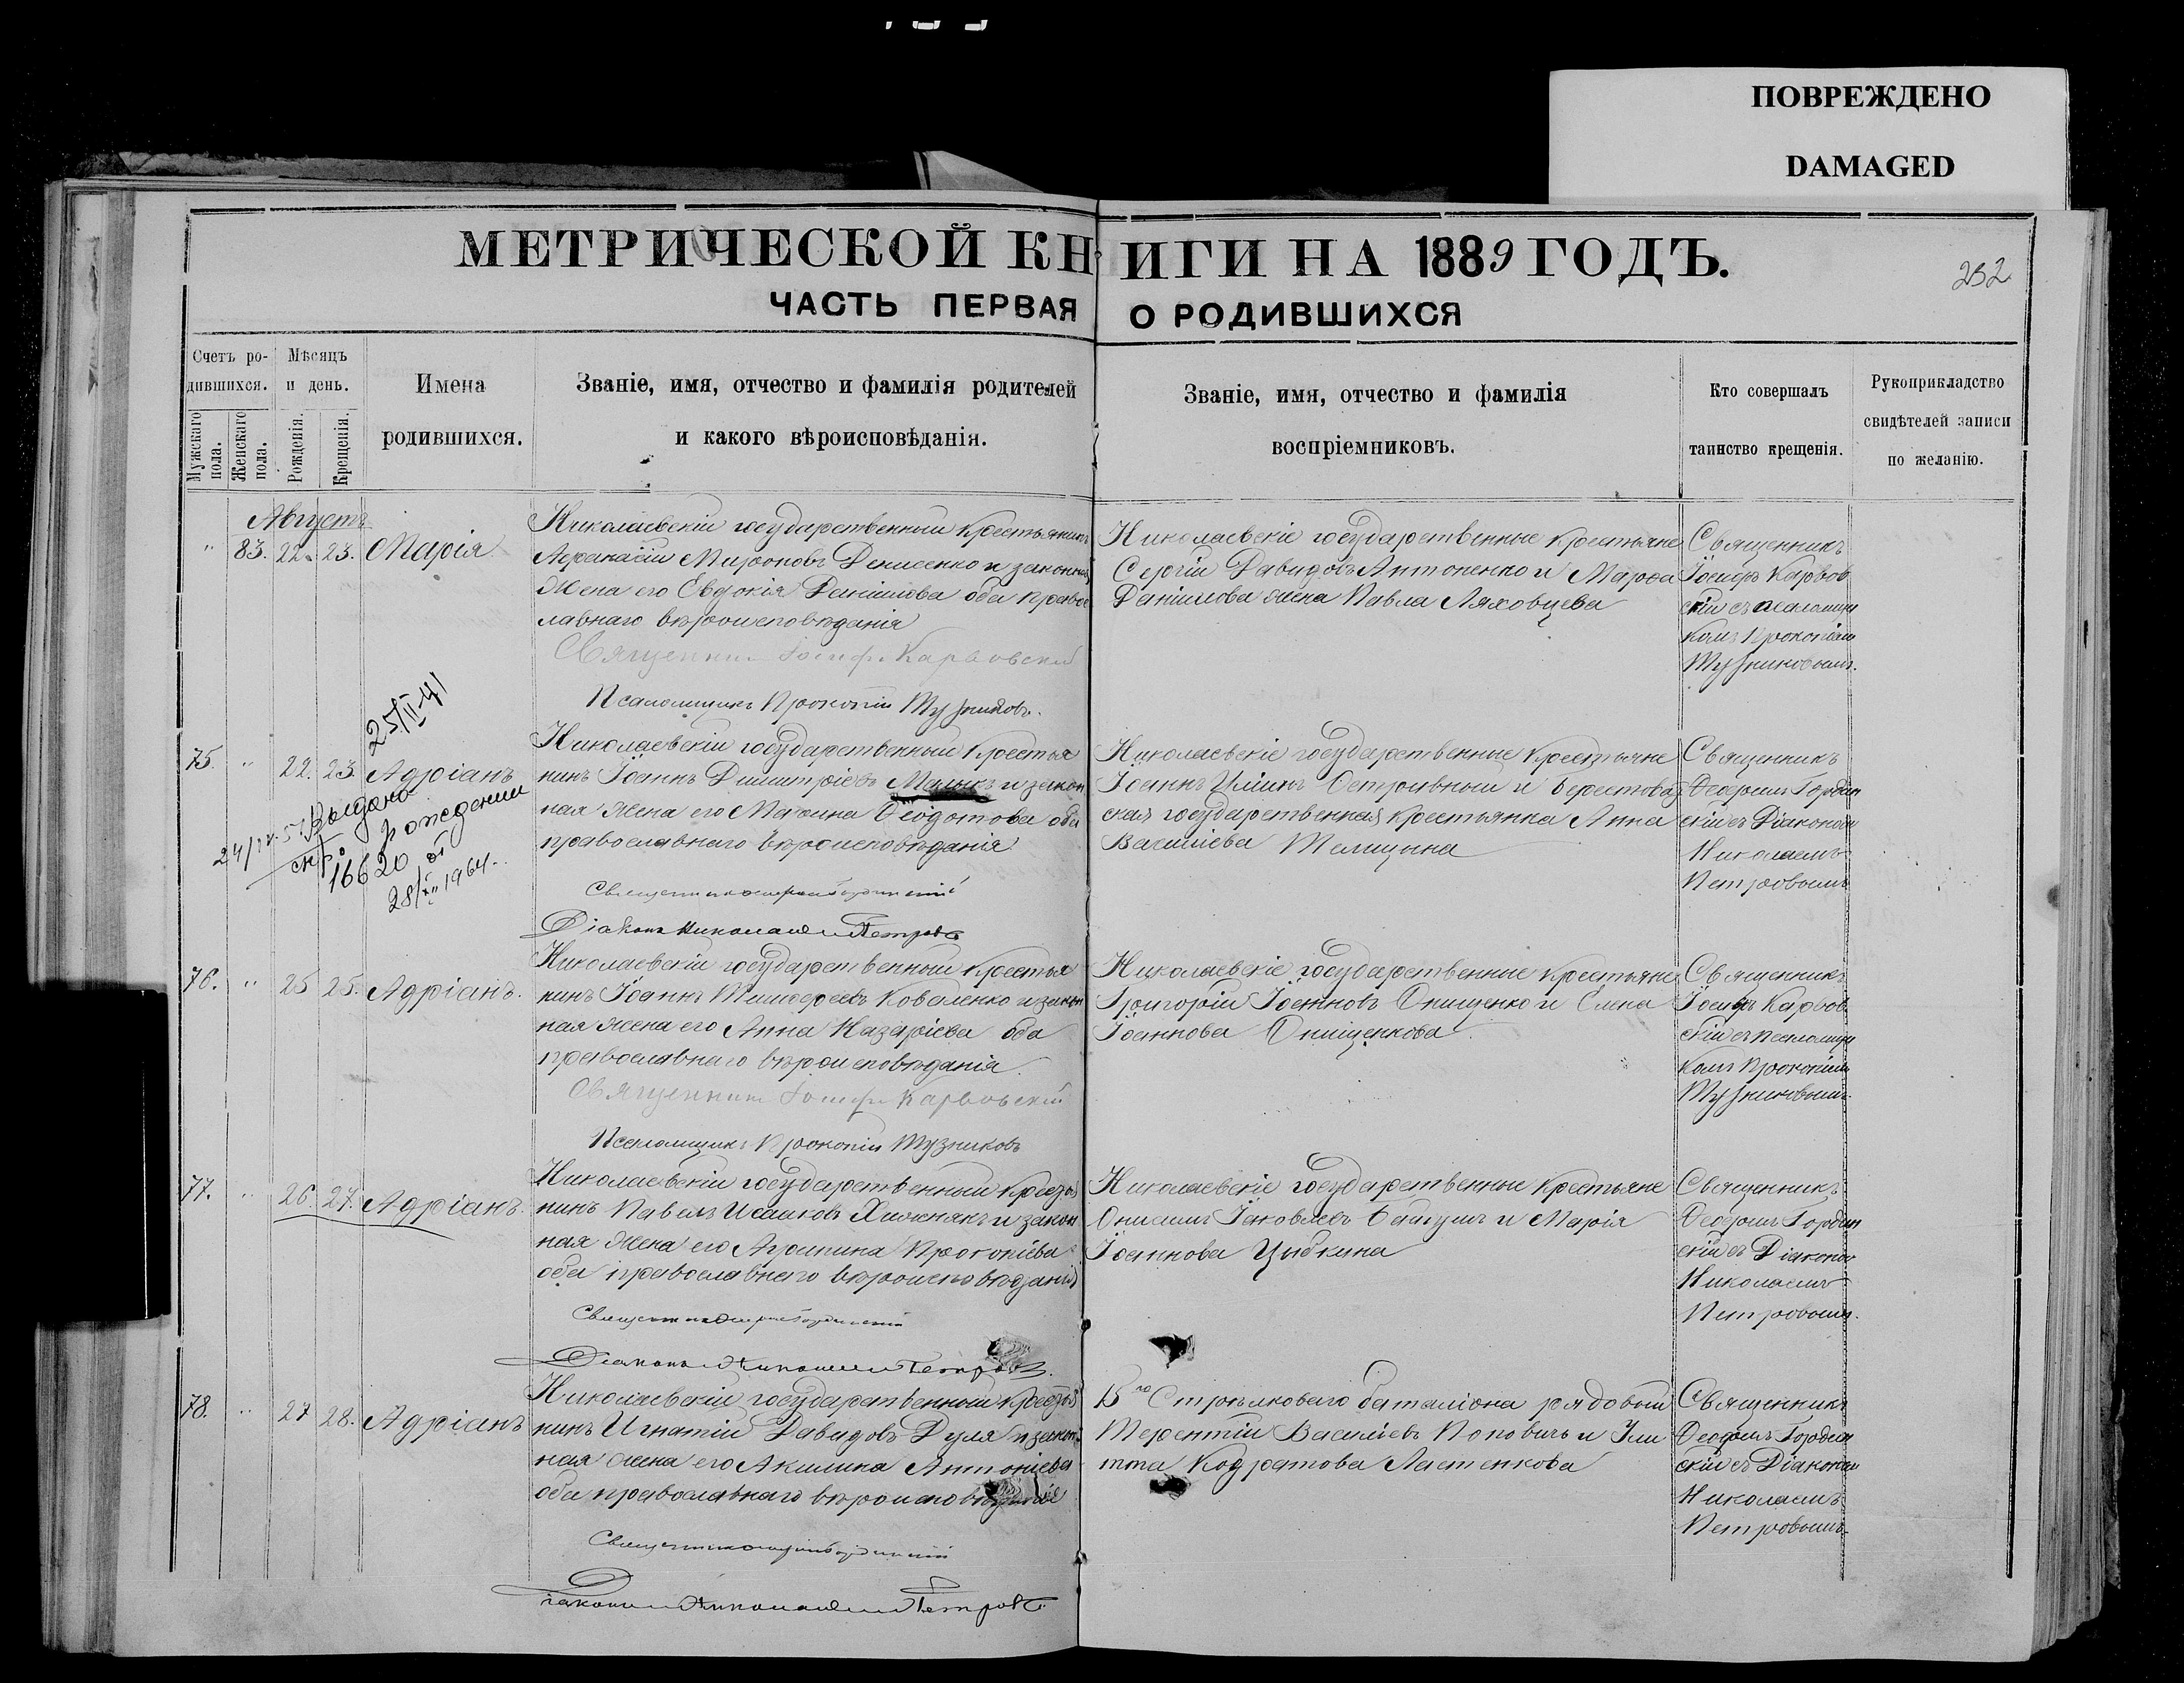 ПОВРЕЖДЕНО
DAMAGED
МЕТРИЧЕСКОЙ КНИГИ НА 1889 ГОДЪ.
232
ЧАСТЬ ПЕРВАЯ О РОДИВШИХСЯ
Счетъ ро-
дившихся.
Мужскаго
пола.
Женскаго
пола.
Мѣсяцъ
и день.
Рожденія.
Крещенія.
Имена
родившихся.
Званіе, имя, отчество и фамилія родителей
и какого вѣроисповѣданія.
Званіе, имя, отчество и фамилія
воспріемниковъ.
Кто совершалъ
таинство крещенія.
Рукоприкладство
свидѣтелей записи
по желанію.
Августъ
" 83. 22. 23. Марія
Николаевскій государственный крестьянинъ
Мироновъ Денисенко и законная
жена его Евдокія Даніилова оба православ
лавнаго вѣроисповѣданія
Священникъ Іосифъ Карвовскій
Псаломщикъ Прокопій Тузниковъ.
Николаевскіе государственные крестьяне
Сергій Давидовъ Антоненко и Марѳа
Даніилова жена Павла Ляховцева
Священникъ
Іосифъ Карвов
скій съ псаломщи
комъ Прокопіемъ
Тузниковымъ.
75. " 22. 23. Адріанъ
25/II-41
Выдано
о рождении
16620 от
28/XII 1964.
Николаевскій государственный крестья
нинъ Іоаннъ Димитріевъ Малыкъ и закон
ная жена его Марина Ѳеодотова оба
православнаго вѣроисповѣданія
Діаконъ Николай Петровъ
Николаевскіе государственные крестьяне
Іоаннъ Ильинъ Остривный и Берестов
ская государственная крестьянка Анна
Василіева Телицына
Священникъ
скій съ Діакономъ
Николаемъ
Петровымъ
76. " 25 25. Адріанъ.
Николаевскій государственный крестья
нинъ Іоаннъ Тимоѳеевъ Коваленко и закон
ная жена его Анна Назаріева оба
православнаго вѣроисповѣданія.
Священникъ Іосифъ Карвовскій
Псаломщикъ Прокопій Тузниковъ
Николаевскіе государственные крестьяне
Григорій Іоанновъ Онищенко и Елена
Іоаннова Онищенкова
Священникъ
Іосифъ Карвов
скій съ псаломщи
комъ Прокопіемъ
Тузниковымъ.
77. " 26. 27. Адріанъ.
Николаевскій государственный крестья
нинъ Павелъ Исааковъ Хижнякъ и закон
ная жена его Агрипина Прокопіева
оба православнаго вѣроисповѣданія
Діаконъ Николай Петровъ.
Николаевскіе государственные крестьяне
Онисимъ Іаковлевъ и Марія
Іоаннова Цыбкина
Священникъ
скій съ Діакономъ
Николаемъ
Петровымъ.
78. " 27 28. Адріанъ
Николаевскій государственный крестья
нинъ Игнатій Давидовъ Дуля и закон
ная жена его Акилина Антоніева
оба православнаго вѣроисповѣданія
Діаконъ Николай Петровъ.
15го Стрѣлковаго баталіона рядовый
Терентій Василіевъ Поповичъ и Ули
тта Кодратова Ластенкова
Священникъ
скій съ Діакономъ
Николаемъ
Петровымъ.